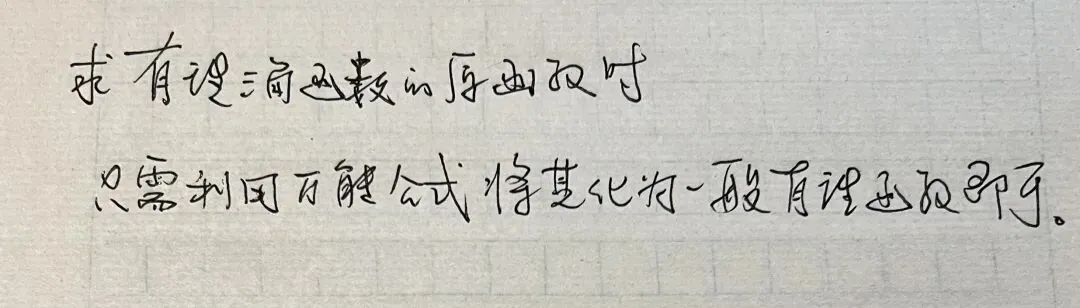 求有理三角函数的原函数时
只需利用万能公式将其化为一般有理函数即可。